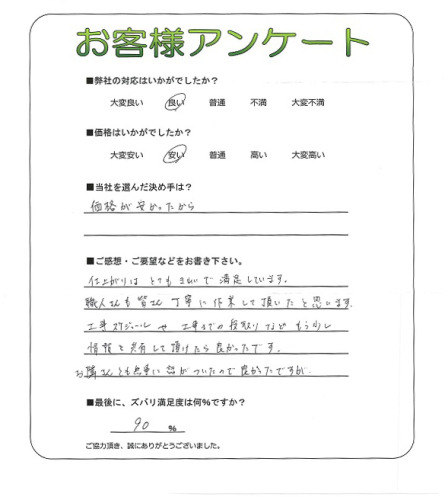 お客様アンケート
■弊社の対応はいかがでしたか？
大変良い 良い 普通 不満 大変不満
■価格はいかがでしたか？
大変安い 安い 普通 高い 大変高い
■当社を選んだ決め手は？
価格が安かったから
■ご感想・ご要望などをお書き下さい。
仕上がりは とても きれいで 満足しています。
職人さんも 皆さん 丁寧に 作業して頂いたと思います。
工事スケジュールや 工事までの 段取り など もう少し
情報を共有して頂けたら良かったです。
お隣さんとも無事に話がついたので良かったですが。
■最後に、ズバリ満足度は何％ですか？
90 %
ご協力頂き、誠にありがとうございました。